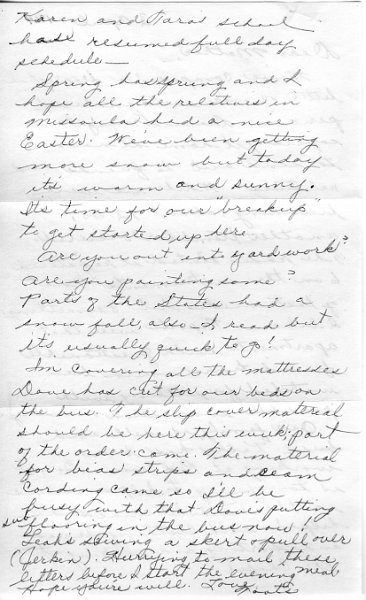 Karen and Tara's school
has resumed full day
schedule —
Spring has sprung and I
hope all the relatives in
Missoula had a nice
Easter. We've been getting
more snow but today
it's warm and sunny.
It's time for our "breakup"
to get started up here
Are you out into yard work?
Are you painting some?
Parts of the States had a
snow fall, also - I read but
it's usually quick to go!
I'm covering all the mattresses
Dave has cut for our beds on
the bus. The slip cover material
should be here this week; part
of the order came. The material
for bias strips and seam
cording came so I'll be
busy with that. Dave's putting
sub flooring in the bus now!
Leah's sewing a skirt & pull over
(Jerkin). Hurrying to mail these
letters before I start the evening meal
Hope you're well. Love,